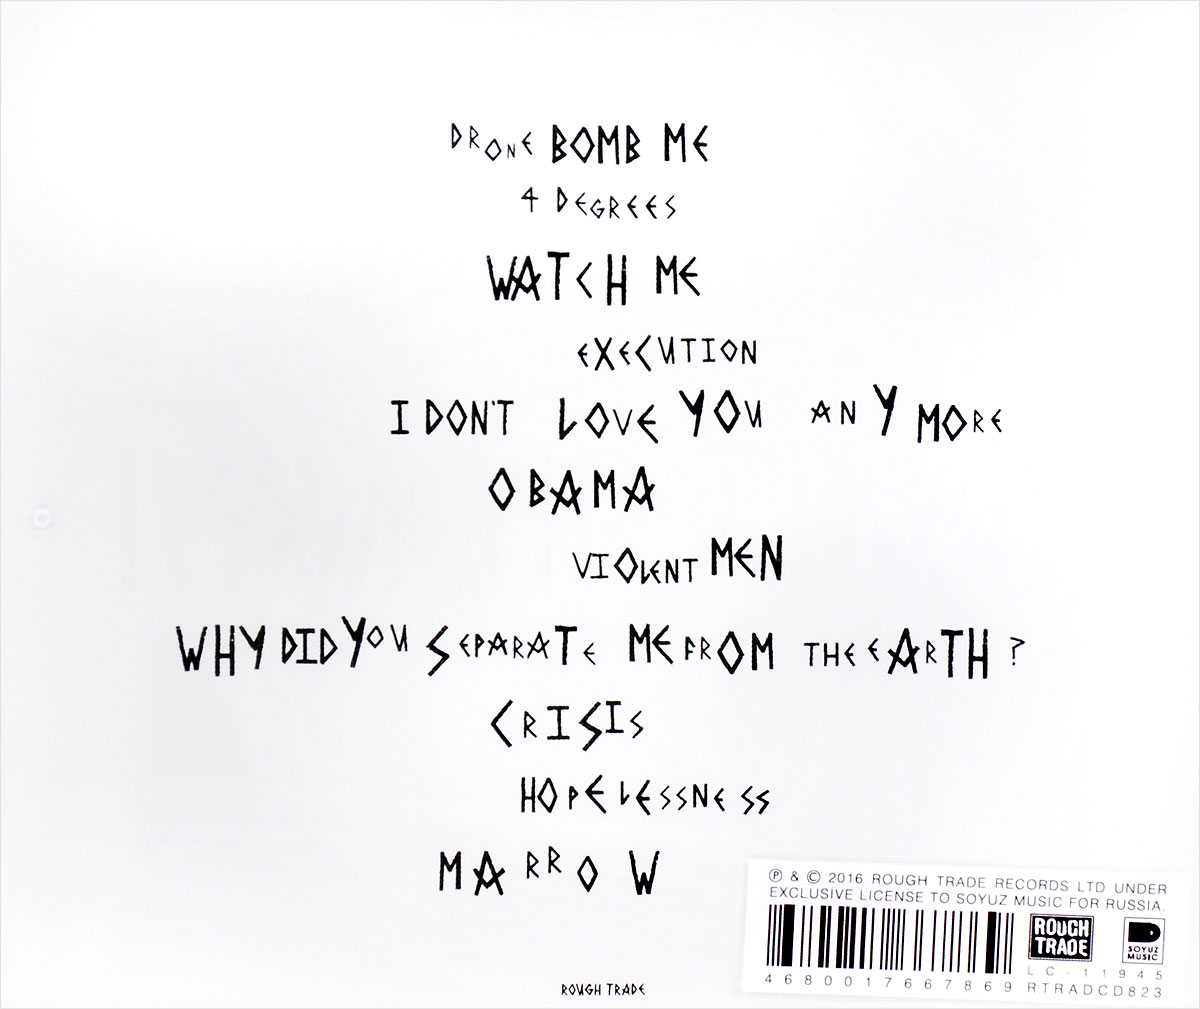 DRONE BOMB ME
4 DEGREES
WATCH ME
EXECUTION
I DON'T LOVE YOU ANY MORE
OBAMA
VIOLENT MEN
WHY DID YOU SEPARATE ME FROM THE EARTH?
CRISIS
HOPELESSNESS
MARROW
℗ & © 2016 ROUGH TRADE RECORDS LTD UNDER
EXCLUSIVE LICENSE TO SOYUZ MUSIC FOR RUSSIA.
ROUGH
TRADE
SOYUZ
MUSIC
LC-11945
4680017667869 RTRADCD823
ROUGH TRADE